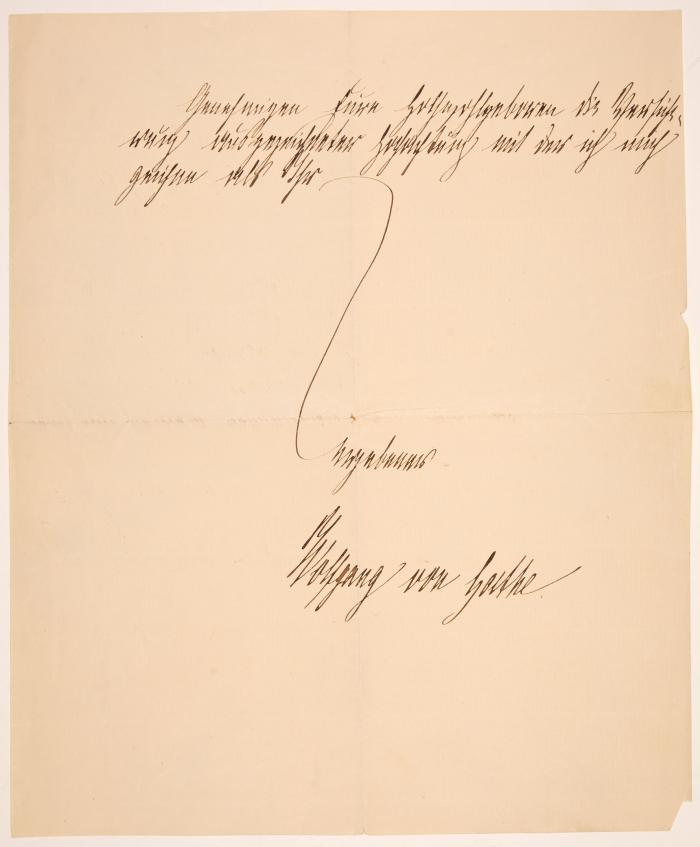 Genehmigen Eure Hochwohlgeboren die Versiche-
rung ausgezeichneter Hochachtung mit der ich mich
zeichne als Ihr
ergebener
Wolfgang von Goethe.